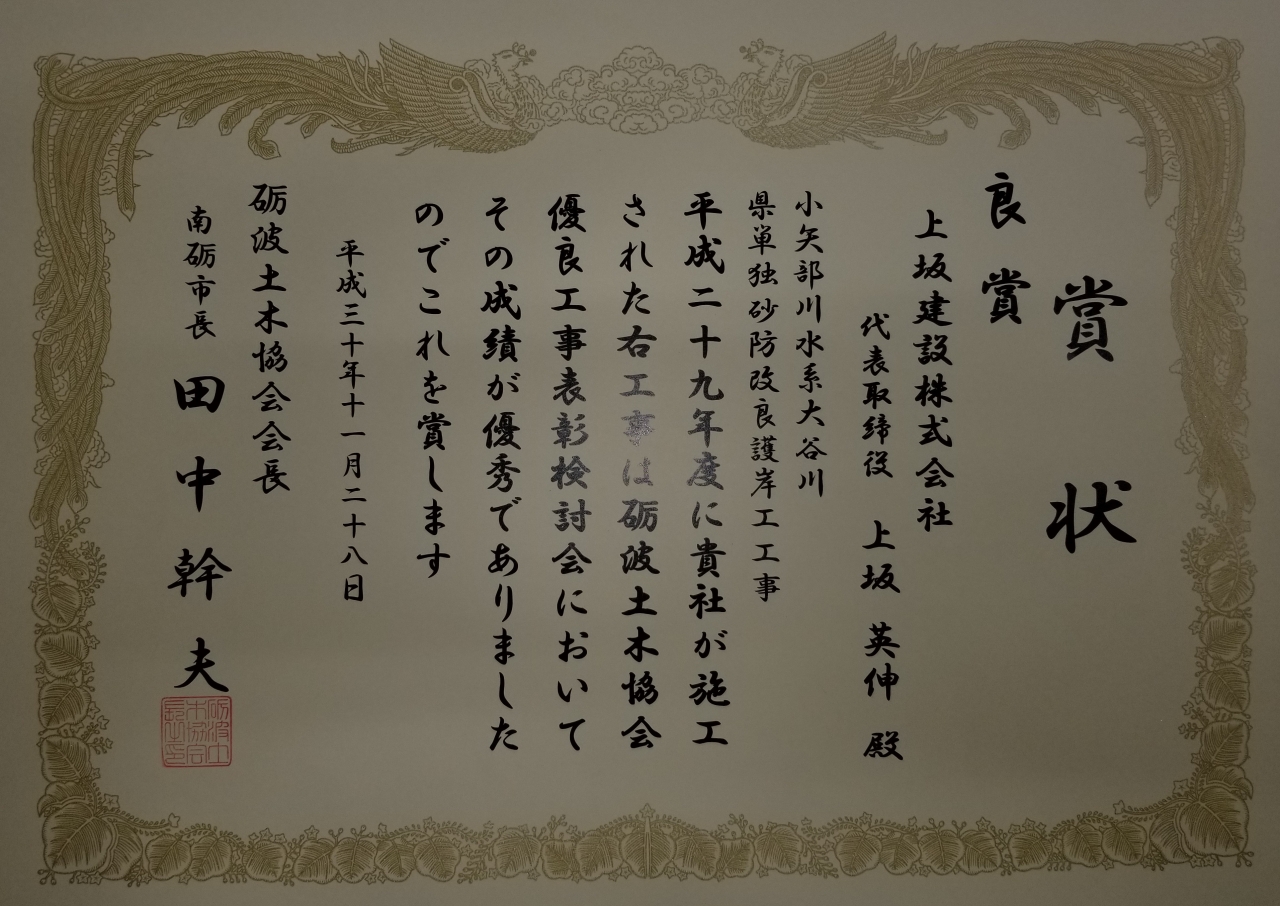 賞状
良賞
上坂建設株式会社
代表取締役 上坂 英伸 殿
小矢部川水系大谷川
県単独砂防改良護岸工工事
平成二十九年度に貴社が施工
された右工事は砺波土木協会
優良工事表彰検討会において
その成績が優秀でありました
のでこれを賞します
平成三十年十一月二十八日
砺波土木協会会長
南砺市長 田中幹夫
砺波土木協会長之印